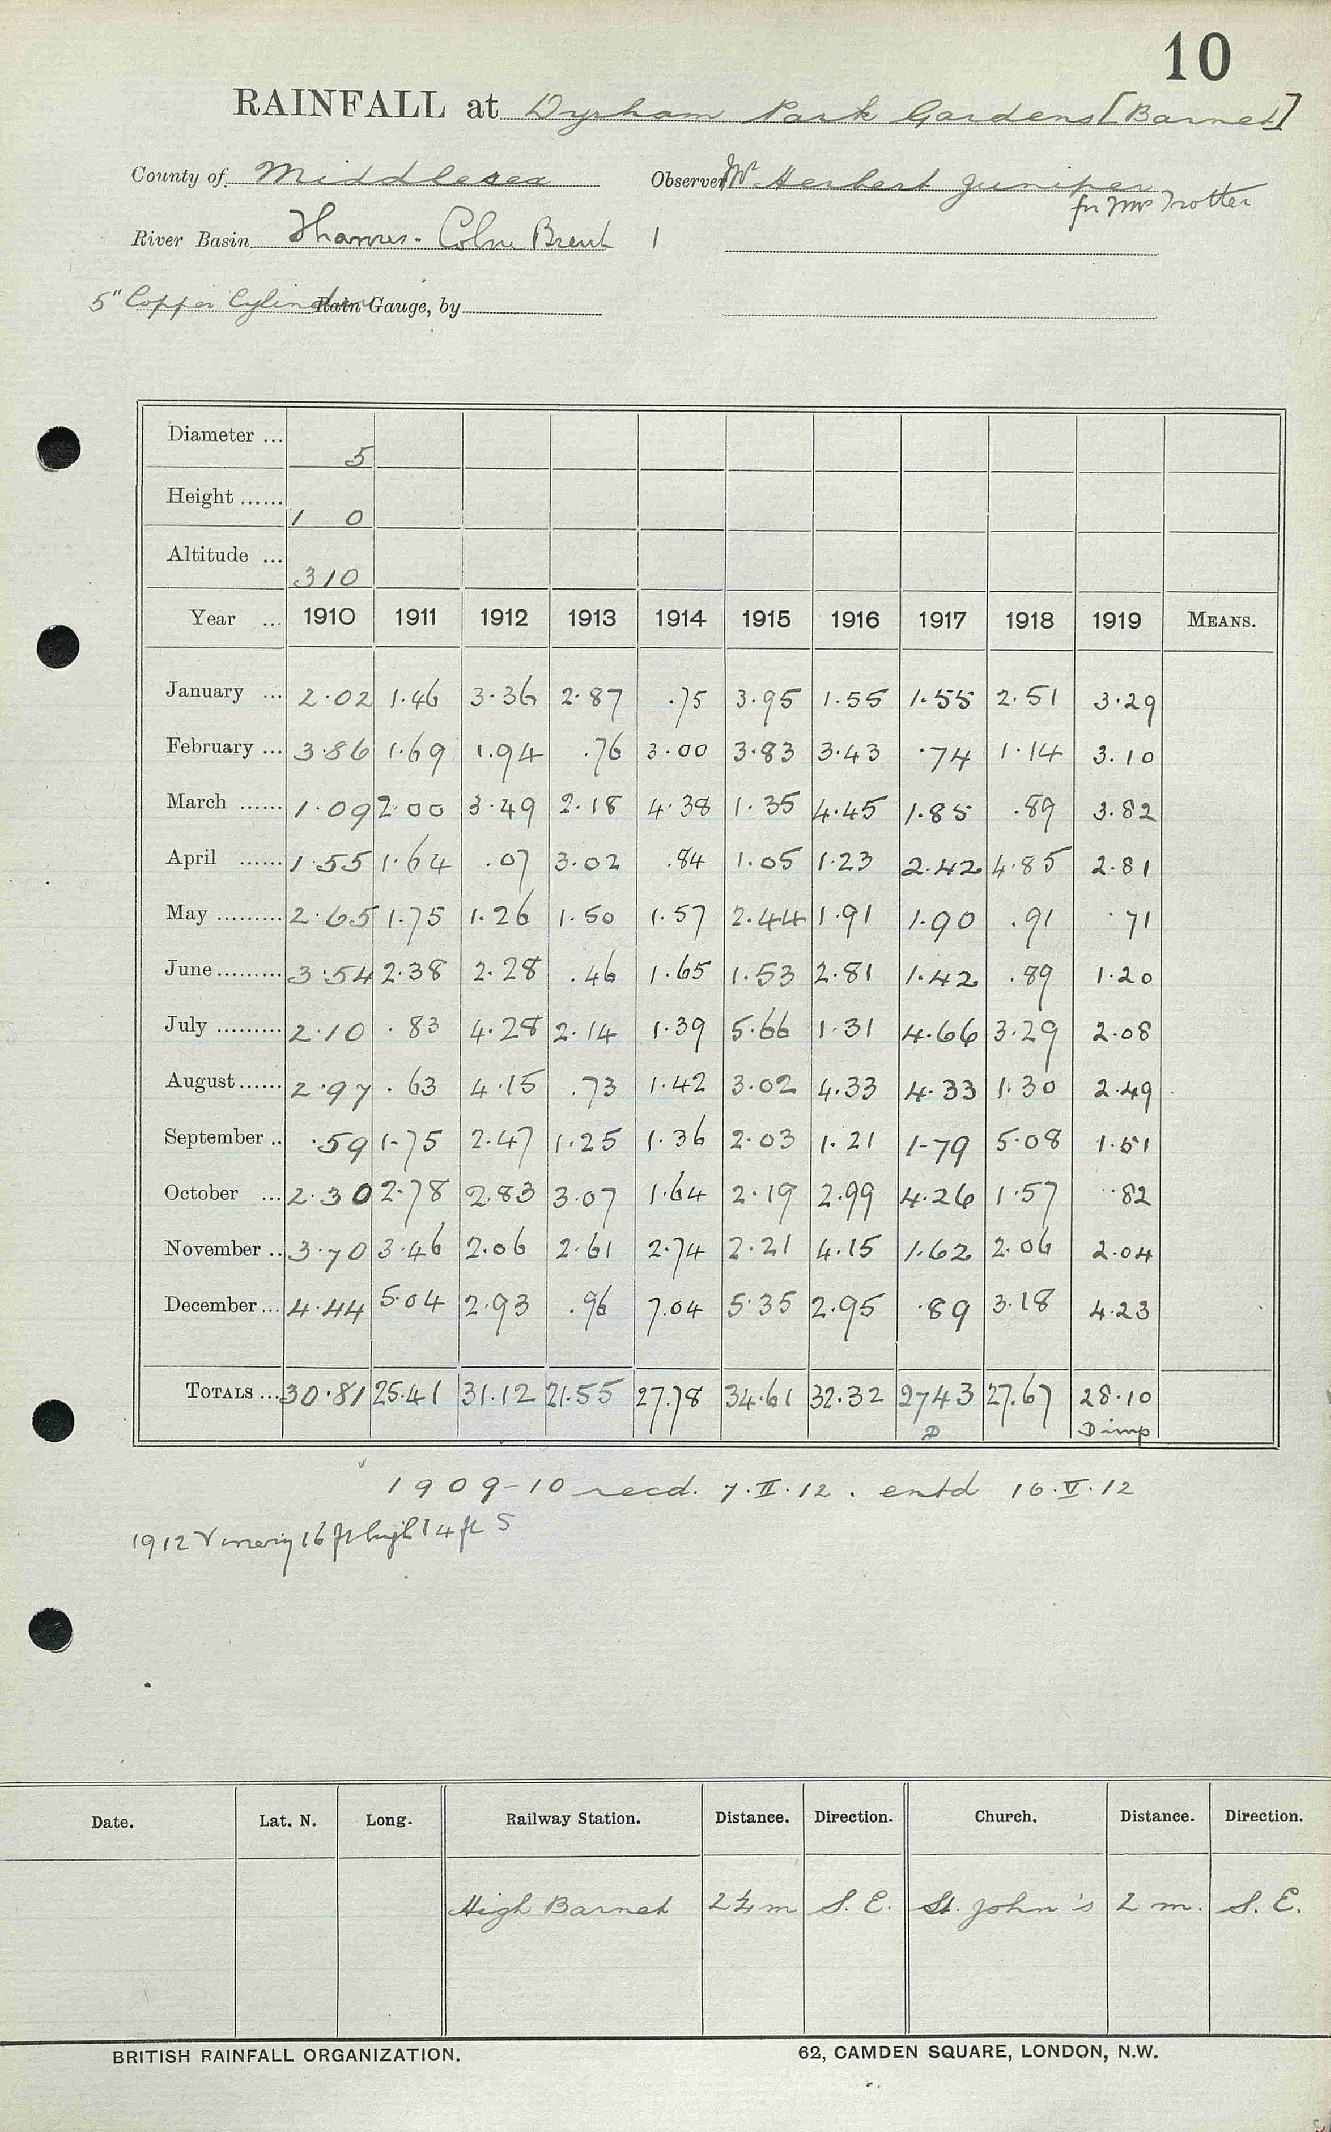 10
RAINFALL at Dyrham Park Gardens [Barnet]
County of Middlesex Observer Mr Herbert Juniper
for Mrs Trotter
River Basin Thames. Colne Brent 1
5" Copper Cylinder Rain Gauge, by
Diameter ... 5
Height ...... 1 0
Altitude ... 310
Year ... 1910 1911 1912 1913 1914 1915 1916 1917 1918 1919 MEANS.
January ... 2.02 1.46 3.36 2.87 .75 3.95 1.55 1.55 2.51 3.29
February ... 3.86 1.69 1.94 .76 3.00 3.83 3.43 .74 1.14 3.10
March ...... 1.09 2.00 3.49 2.18 4.38 1.35 4.45 1.85 .89 3.82
April ...... 1.55 1.64 .07 3.02 .84 1.05 1.23 2.42 4.85 2.81
May ......... 2.65 1.75 1.26 1.50 1.57 2.44 1.91 1.90 .91 .71
June ......... 3.54 2.38 2.28 .46 1.65 1.53 2.81 1.42 .89 1.20
July ......... 2.10 .83 4.28 2.14 1.39 5.66 1.31 4.66 3.29 2.08
August ...... 2.97 .63 4.15 .73 1.42 3.02 4.33 4.33 1.30 2.49
September .. .59 1.75 2.47 1.25 1.36 2.03 1.21 1.79 5.08 1.51
October ... 2.30 2.78 2.83 3.07 1.64 2.19 2.99 4.26 1.57 .82
November .. 3.70 3.46 2.06 2.61 2.74 2.21 4.15 1.62 2.06 2.04
December ... 4.44 5.04 2.93 .96 7.04 5.35 2.95 .89 3.18 4.23
TOTALS ... 30.81 25.41 31.12 21.55 27.78 34.61 32.32 27.43 27.67 28.10
D Dimp
1909-10 recd. 7.II.12. entd 16.V.12
1912 Vinery 16 ft high 14 ft S
Date. Lat. N. Long. Railway Station. Distance. Direction. Church. Distance. Direction.
High Barnet 2½ m S.E. St. John's 2 m. S.E.
BRITISH RAINFALL ORGANIZATION. 62, CAMDEN SQUARE, LONDON, N.W.